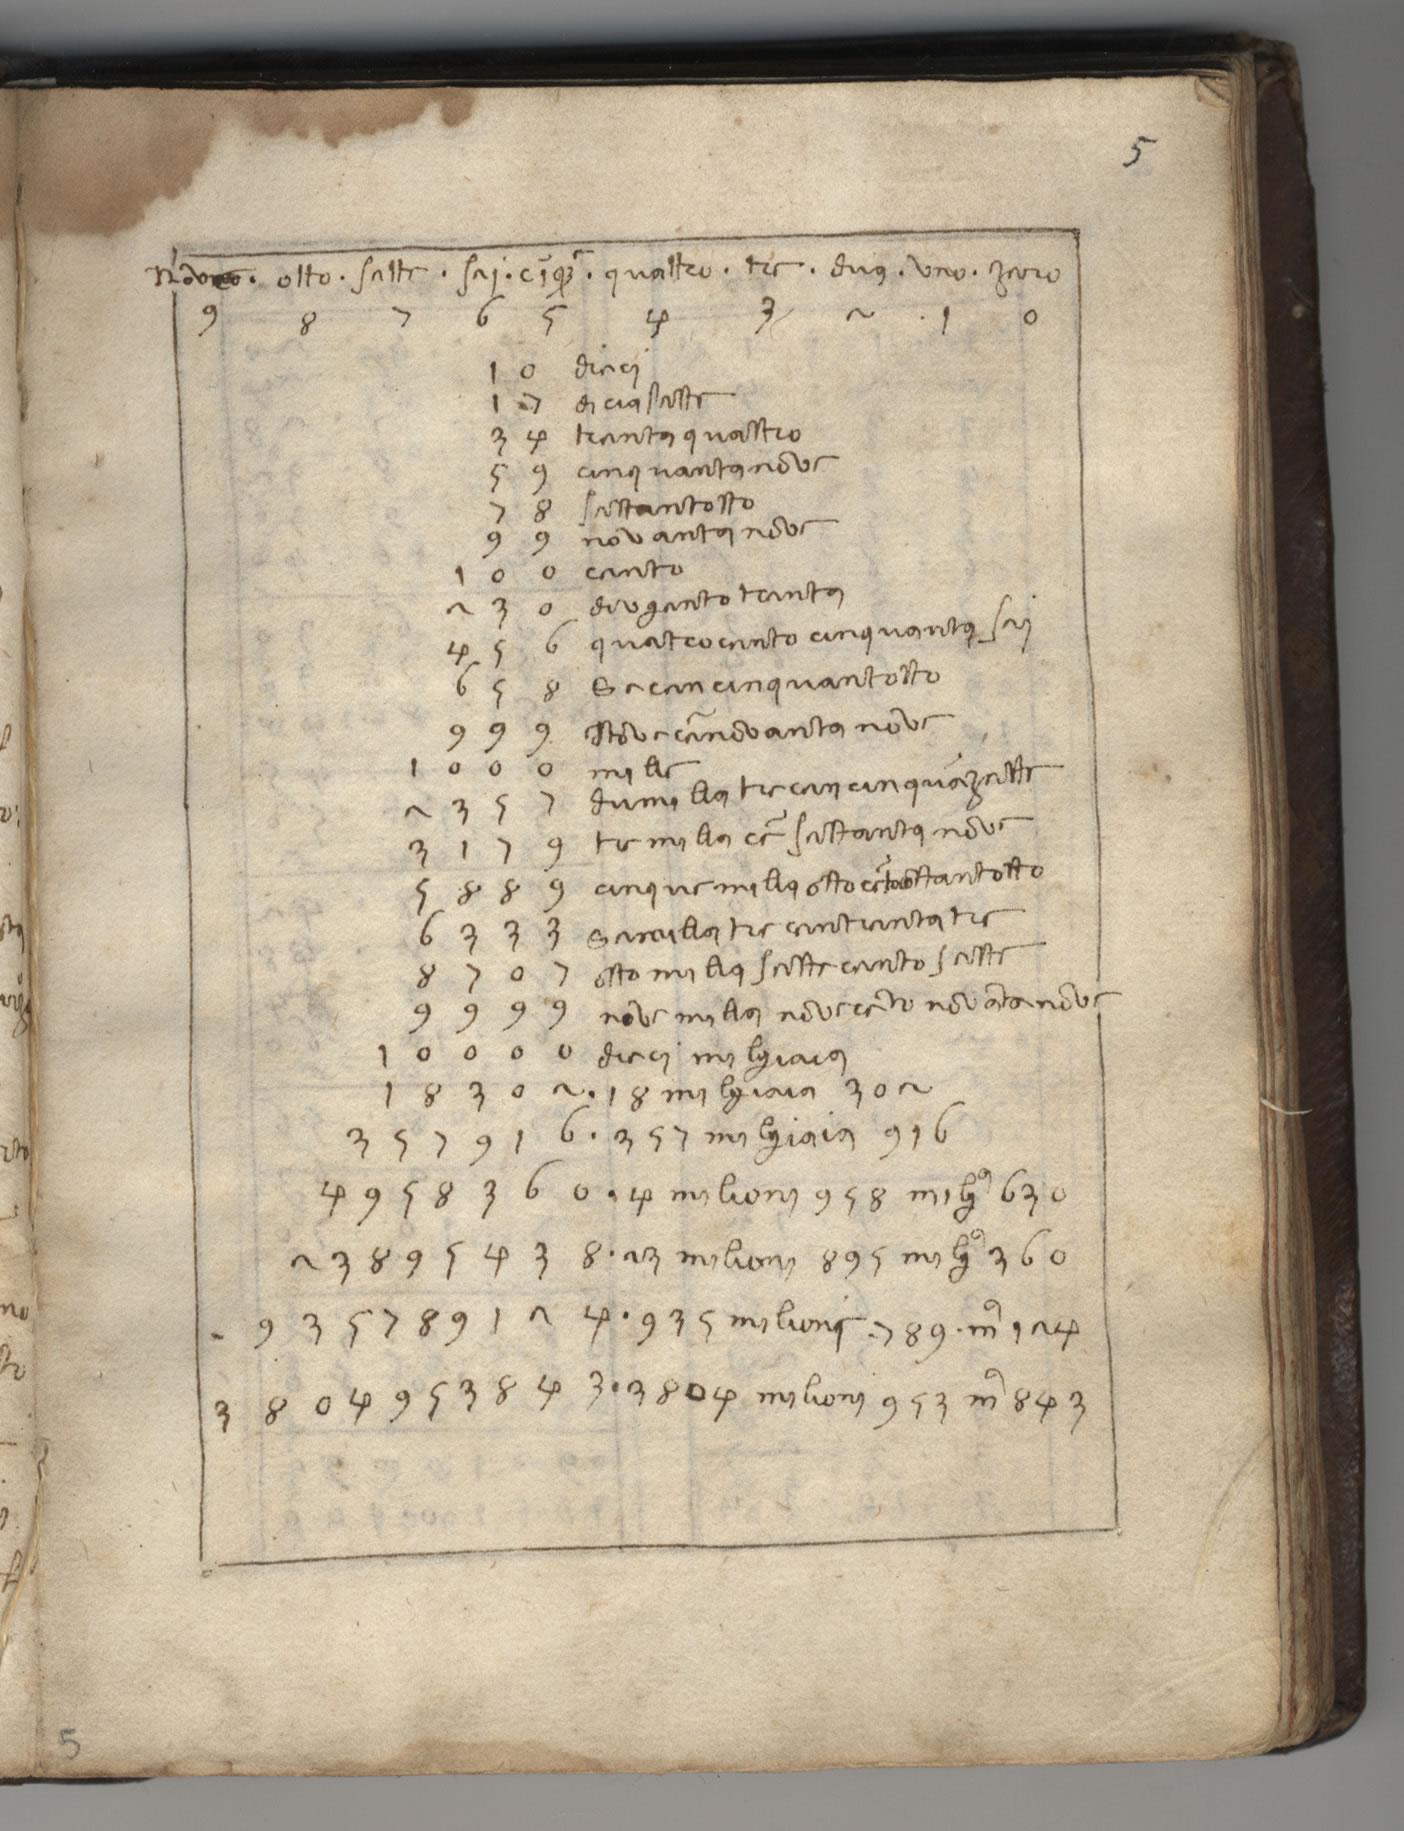 5
Nove . otto . sette . sej . cīqȝ . quattro . tre . dua . uno . zero
9 8 7 6 5 4 3 2 1 0
1 0 dieci
1 7 diciasette
3 4 trenta quattro
5 9 cinquanta nove
7 8 settantotto
9 9 novanta nove
1 0 0 cento
2 3 0 dugento trenta
4 5 6 quatrocento cinquanta sej
6 5 8 Secen cinquantotto
9 9 9 nove cē novanta nove
1 0 0 0 mille
2 3 5 7 dumilla tre cen cinquāsette
3 1 7 9 tre milla cē settanta nove
5 8 8 9 cinque milla otto cēto ottantotto
6 3 3 3 Semilla tre centrenta tre
8 7 0 7 otto milla sette cento sette
9 9 9 9 nove milla nove cēto novāta nove
1 0 0 0 0 dieci migliaia
1 8 3 0 2 . 18 migliaia 302
3 5 7 9 1 6 . 357 migliaia 916
4 9 5 8 3 6 0 . 4 milioni 958 miglª 630
2 3 8 9 5 4 3 8 . 23 milioni 895 miglª 360
9 3 5 7 8 9 1 2 4 . 935 milioni . 789 . mª 124
3 8 0 4 9 5 3 8 4 3 . 3804 milioni 953 mª 843
5